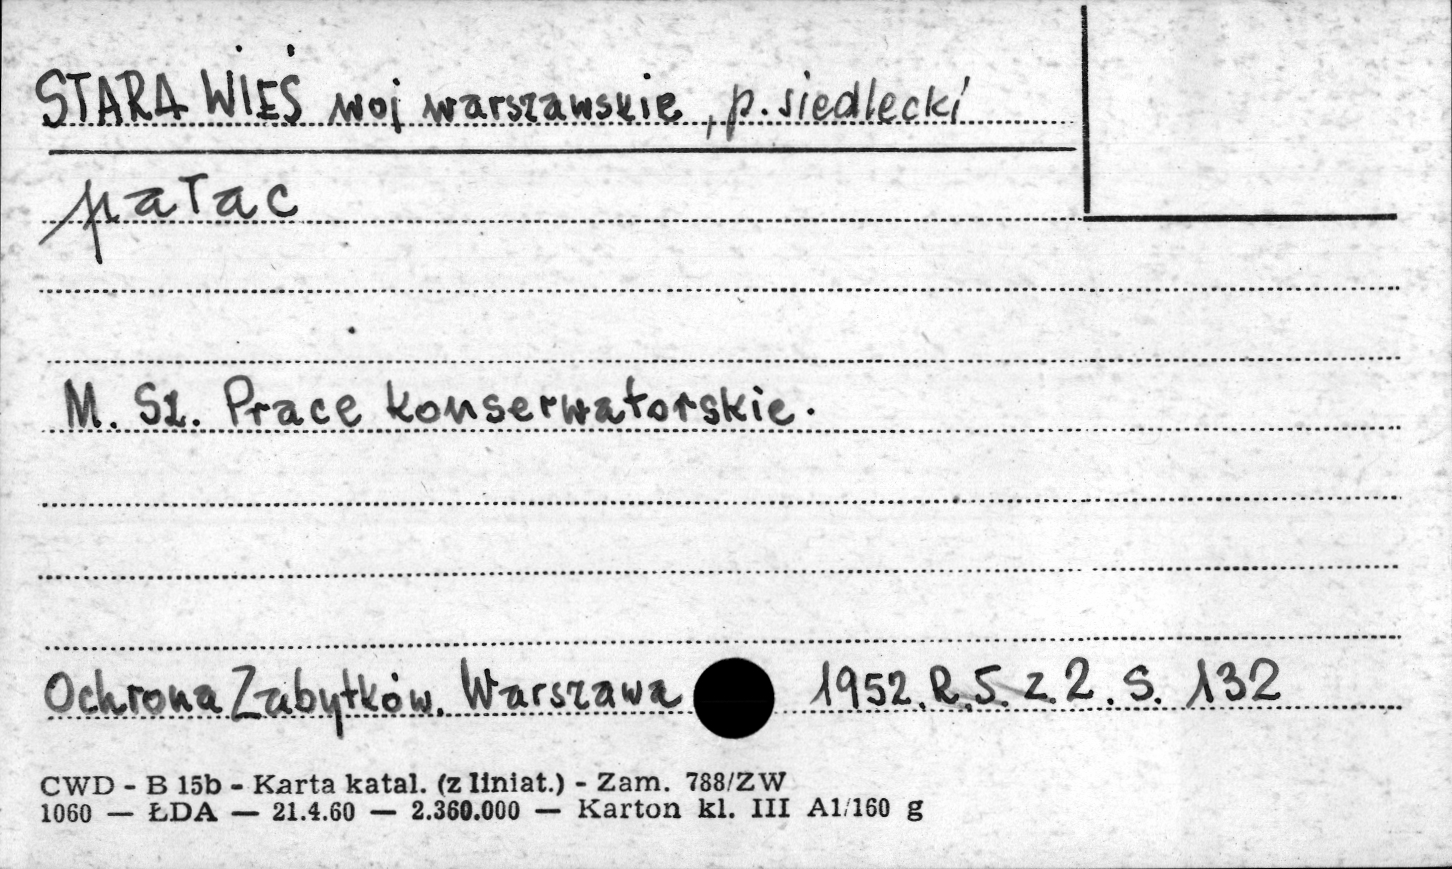 STARA WIEŚ woj warszawskie, p. siedlecki
pałac
M. Sz. Prace konserwatorskie.
Ochrona Zabytków. Warszawa 1952. R. 5. z. 2. S. 132
CWD - B 15b - Karta katal. (z liniat.) - Zam. 788/ZW
1060 — ŁDA — 21.4.60 — 2.360.000 — Karton kl. III A1/160 g